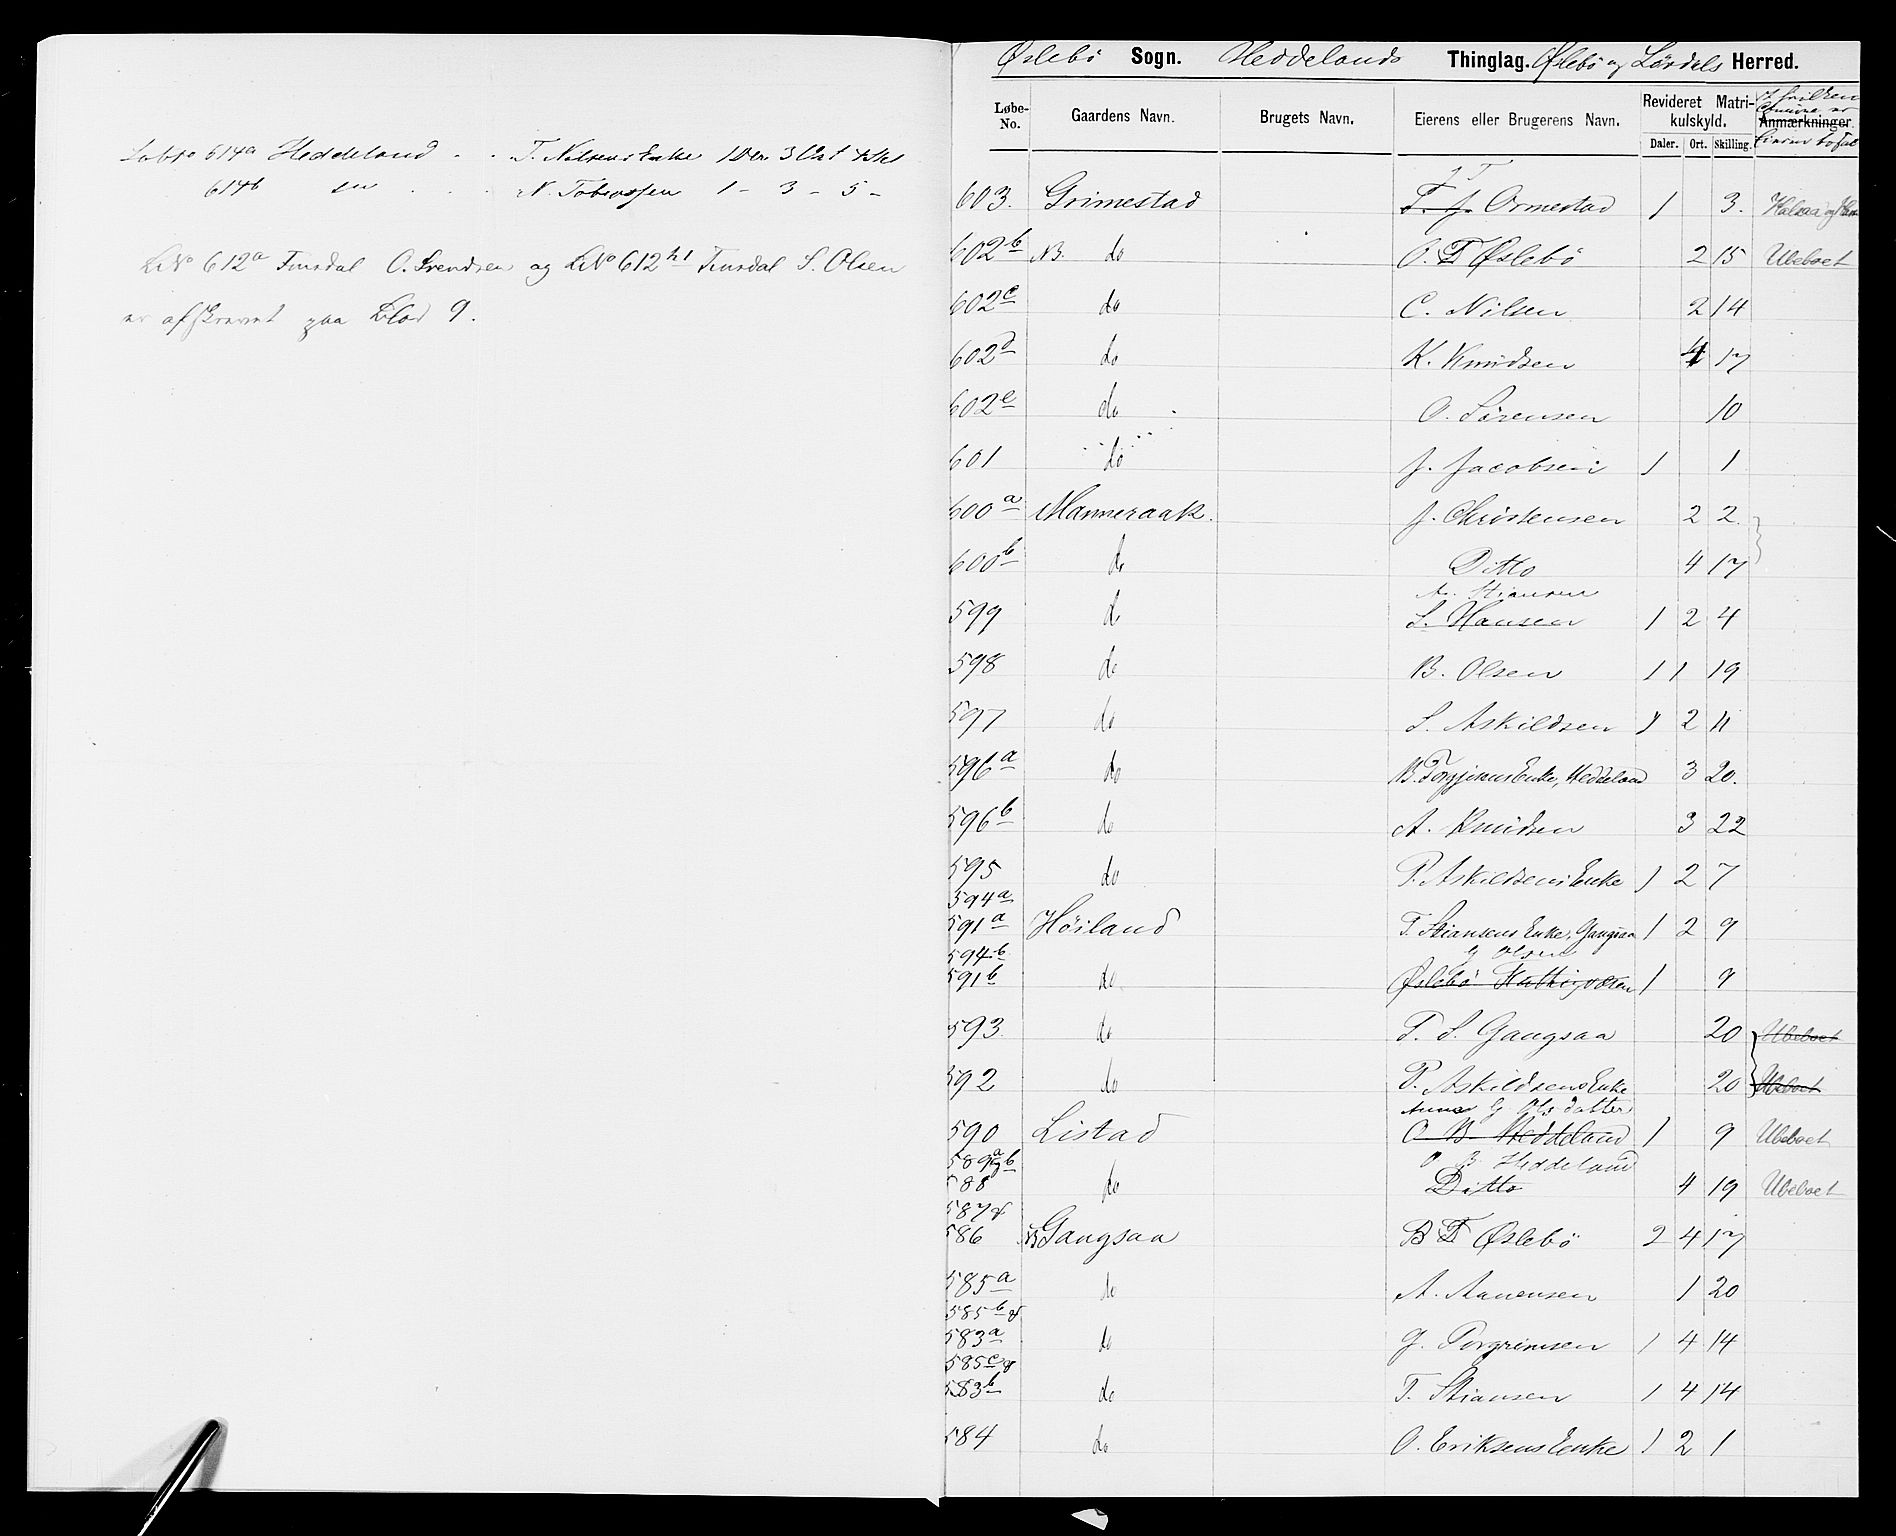 Løbno 614a Heddeland . . T. Nilsens Enke 1 Dlr. 3 Ort 4 Sk
614b do . . . N. Tobiassen 1 - 3 - 5 -
LNo 612a Finsdal O. Svendsen og LNo 612b1 Finsdal S. Olsen
er afskrevet paa Blad 9.
Øslebö Sogn. Heddelands Thinglag. Øslebö og Løvdals Herred.
Løbe-No. Gaardens Navn. Brugets Navn. Eierens eller Brugerens Navn. Revideret Matrikulskyld. Daler. Ort. Skilling. Anmærkninger.
I hvilken Comune er Eieren bofat
603. Grimestad T. J. Ormestad 1 3. Halsaa og
602b NB. do O. T Øslebö 2 15 Ubeboet
602c do C. Nilsen 2 14
602d do K. Knudsen 4 17
602e do O. Sörensen 10
601 do J. Jacobsen 1 1
600a Manneraak. J. Christensen 2 2
600b do Ditto 4 17
A. Stiansen
599 do S. Hansen 1 2 4
598 do B. Olsen 1 1 19
597 do S. Askildsen 1 2 11
596a do B. Torgjersens Enke, Heddeland 3 20.
596b do A. Knudsen 3 22
595 do P. Askildsens Enke 1 2 7
594a
591a Höiland T. Stiansens Enke, Gangsaa 1 2 9
594b G Olsen
591b do Øslebö Fattigvæsen 1 9
593. do T. S. Gangsaa 20 Ubeboet
592 do P. Askildsens Enke 20 Ubeboet
Anne G Olsdatter
590 Listad O B Heddeland 1 9 Ubeboet
589a og b O B Heddeland
588 do Ditto 4 19 Ubeboet
587 &
586 NB Gangsaa B T Øslebö 2 4 17
585a do A. Aanensen 1 20
585b &
583a do G. Torgrimsen 1 4 14
585c &
583b do T. Stiansen 1 4 14
584 do O. Eriksens Enke 1 2 1